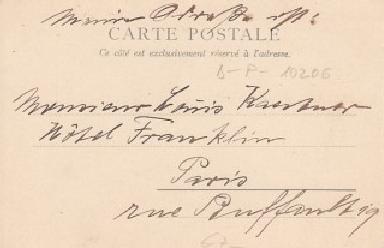 Meine Adresse ist:
CARTE POSTALE
Ce côté est exclusivement réservé à l'adresse.
D-P-10206
Monsieur Louis Kaestner
Hôtel Franklin
Paris
rue Buffaultrig
67